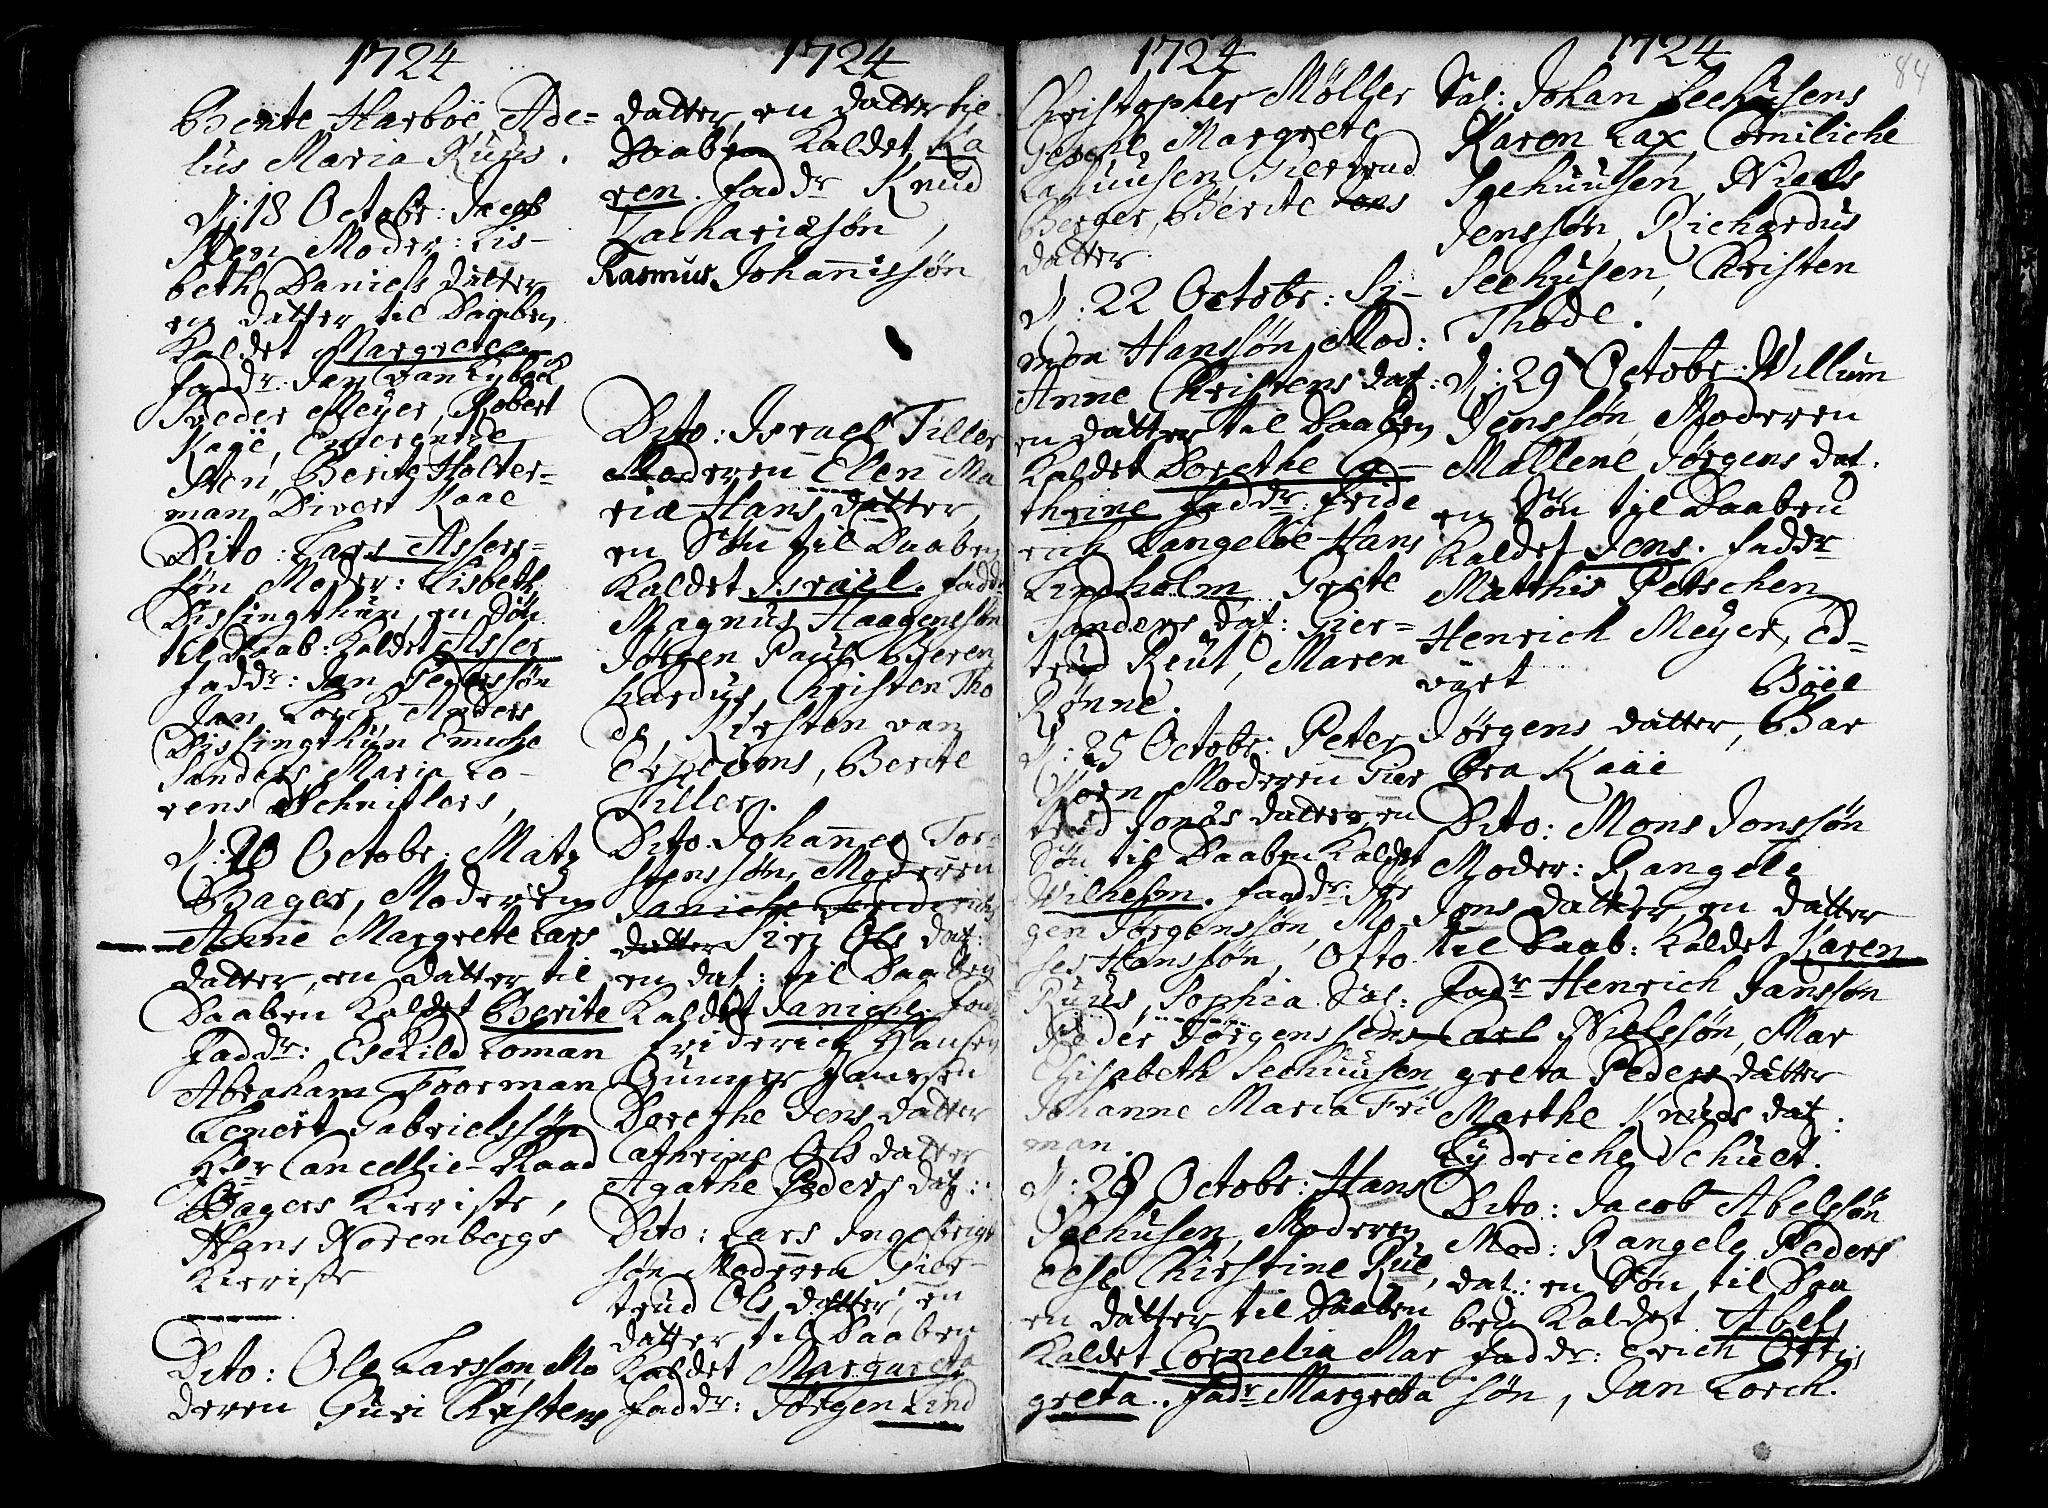 1724
Berite Harboë Ade=
lus Maria Ruus.
d. 18 Octobr: Jacob
Sten Moder: Lis-
beth Daniels datter
en datter til Daaben
Kaldet Margrete
faddr: Jan van Lybeck
Meyer, Robert
Kaÿe,
Sten, Berite Holter-
man, Divert Kaae
Dito: Lars Assers-
søn Moder: Lisbeth
Dissingthun, en Søn
til Daab: Kaldet Asser
faddr: Jan Pederssøn
Jan Lorch, Anders
Dissingthun
Sanders Maria Lo-
rens Schnitlers,
d. 20 Octobr: Matz
Bager, Moderen
Anne Margrete Lars
datter, en datter til
Daaben Kaldet Berite
faddr: Eschild Loman
Abraham Foorman
Lenert Gabrielssøn
Her Cancellie-Raad
Bagers Kieriste,
Hans Norenbergs
Kieriste
Dito: Ole Larssøn, Mo
deren Guri Christens
1724
datter, en datter til
Daaben Kaldet Ka
ren. faddr Knud
Zachariæsøn,
Rasmus Johannissøn
Dito: Israel Tiller
Moderen Elen Ma
ria Hans datter,
en Søn til Daaben
Kaldet Israel. faddr
Magnus Haagenssøn
Jørgen Paul Beren
hardus, Christen Tho
de, Kirsten van
Erpecoms, Berite
Tiller.
Dito: Johannes Tor-
stenssøn, Moderen
Janiche Friderichs
datter Siri Ols dat:
en dat: til Daaben
Kaldet Janiche. fad
Friderich Hansen
Gunner Jansen
Dorethe Jens datter
Cathrine Ols datter
Agathe Peders dat:
Dito: Lars Ingebrigt
søn Moderen Gier-
trud Ols datter, en
datter til Daaben
Kaldet Margareta
faddr: Jørgen Lind
1724
Christopher Møller
Margrete
Giertrud
Berger, Berite Jons
datter
d: 22 Octobr: Si-
mon Hanssøn Mod:
Anne Christens dat:
en datter til Daaben
Kaldet Dorethe Ca-
thrine faddr: Fride
rich Langeloe Hans
Lindholm Grete
Sanders dat: Gier=
trud Reut, Maren
Rønne.
d: 25 Octobr: Peter
Koen, Moderen Gier
trud Jonas datter, en
Søn til Daaben Kaldet
Wilhelm. faddr: Jør
gen Jørgenssøn, Mo-
ses Hanssøn, Otto
Ruus, Sophia Sal:
Peder Jørgenssens
Elisabeth Seehuusen,
Johanne Maria Fri
man.
d: 28 Octobr: Hans
Seehusen, Moderen
Else Christine Rue,
en datter til Daaben
Kaldet Cornelia Mar
greta. fadr Margreta
1724
84
Sal: Johan Seehusens
Karen Lax, Corniliche
Seehuusen, Niels
Jenssøn, Richardus
Seehusen, Christen
Thode.
d: 29 Octobr: Willum
Jenssøn, Moderen
Mallene Jørgens dat:
en Søn til Daaben
Kaldet Jens. faddr
Matthis Petschen
Henrich Meyer, Ed-
vart Böee
Jørgens datter, Bar
bra Kaae
Dito: Mons Jonssøn
Moder: Rangele
Jons datter, en datter
til Daab: Kaldet Karen
fadr Henrich Janssøn
Carl Nielssøn, Mar
greta Peders datter
Marthe Knuds dat:
Lydriche Schuert.
Dito: Jacob Abelssøn
Mod: Rangele Peders
dat: en Søn til Daa
ben Kaldet Abel
faddr: Erich Otte
søn, Jan Lorch.